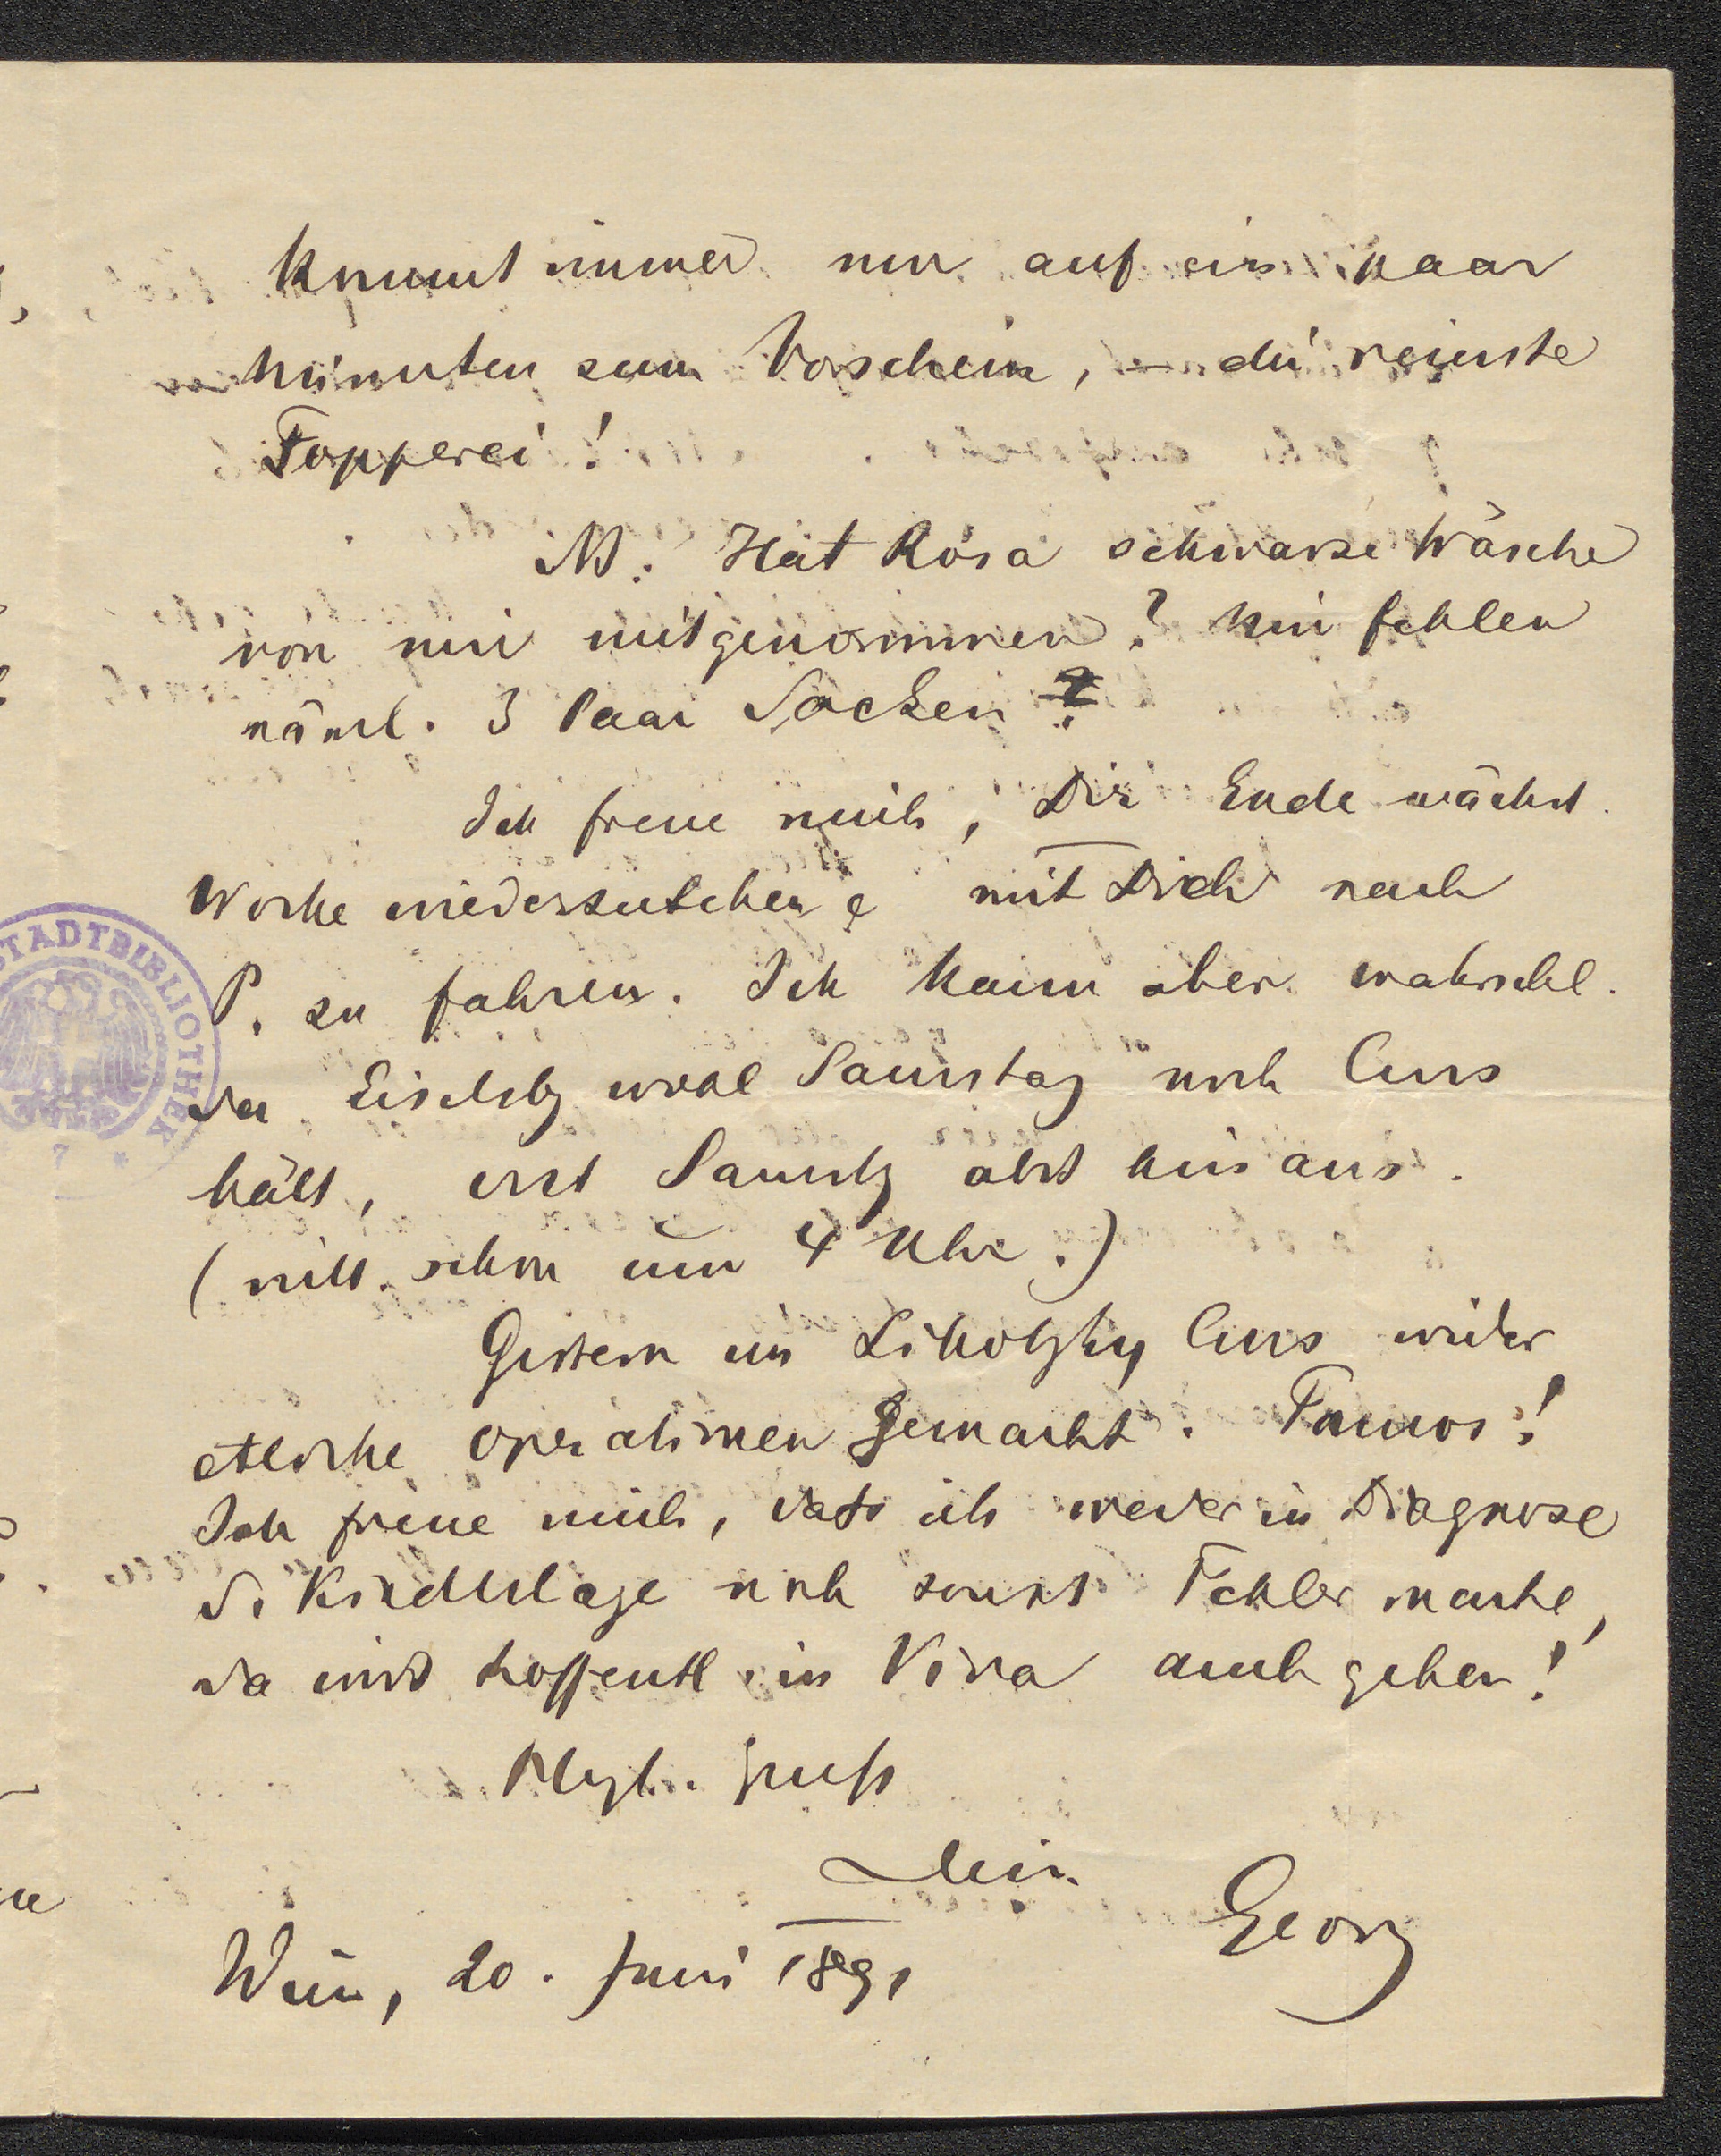 kommt immer nur auf ein paar
Minuten zum Vorschein, – die reinste
Fopperei!
NB. Hat Rosa schwarze Wäsche
von mir mitgenommen? Mir fehlen
näml. 3 Paar Socken
Ich freue mich, Dir Ende nächst.
Woche wiederzusehen & mit Dich nach
P. zu fahren. Ich kann aber wahrschl.
da Eiselsbg wohl Samstag noch Curs
hält, erst Samstg abds hinaus.
(nicht schon um 4 Uhr.)
Gestern im Curs wieder
etliche Operationen gemacht. Famos!
Ich freue mich, dass ich weder in Diagnose
d. Kindeslage noch sonst Fehler mache,
da wird hoffentl. in Viva auch gehen!
Gruß
Dein
Georg
Wien, 20. Juni 1891
STADTBIBLIOTHEK
* 7 *